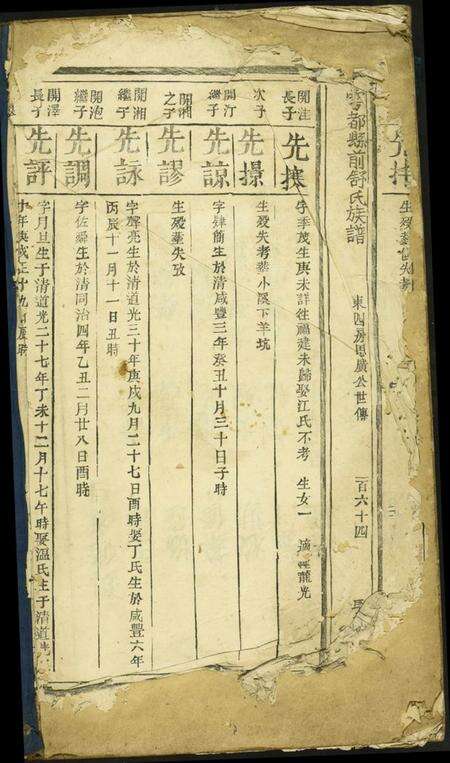 先
生殁葬俱失考
雩都縣前舒氏族譜
東四房思廣公世傳
一百六十四
開注
長子
先
字季茂生庚未詳往福建未歸娶江氏不考 生女一 適 龍光
次子
先
生殁失考葬小溪下羊坑
開汀
繼子
先諒
字肄簡生於清咸豐三年癸丑十月三十日子時
開湘
之子
先謬
生殁葬失攷
開湘
繼子
先詠
字聲亮生於清道光三十年庚戌九月二十七日酉時娶丁氏生於咸豐六年
丙辰十一月十一日丑時
開泡
繼子
先調
字佐舜生於清同治四年乙丑二月廿八日酉時
開澤
長子
先評
字月旦生于清道光二十七年丁未十二月十七午時娶溫氏生于清道光
十年庚戌正月九日辰時